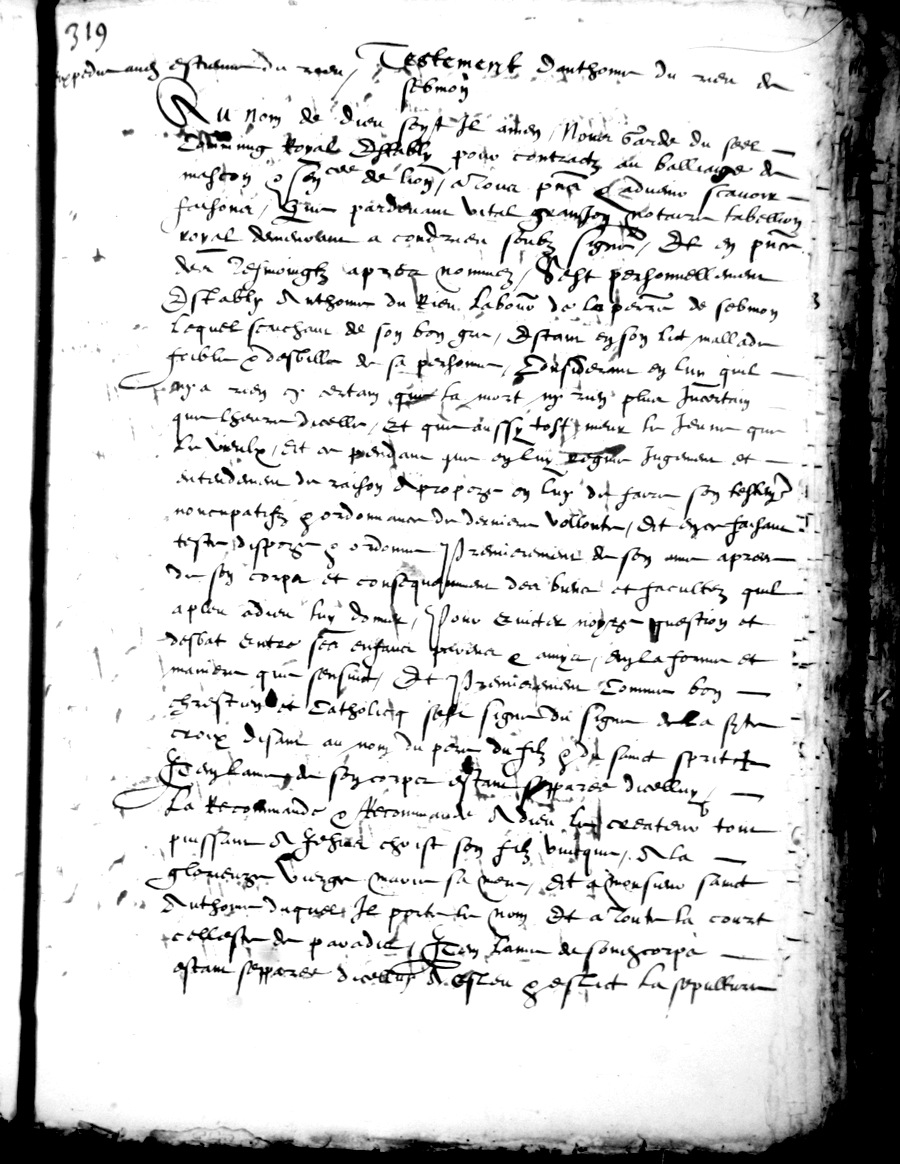 319
expedie aud estienne du rieu / Testement Danthoine du rieu de
sebmon
Au Nom de dieu soyt Il amen / Nous Garde du seel
Commung Royal Estably pour contractz au balliaige de
mascon & de lion / a Tous pnts & advenir scavoir
faisons / Que pardevant vital notaire tabellion
royal demeurant a condrieu soubz signe / Et en pnce
des Tesmoingtz apres nommez / Sest personnellement
Estably Anthoine du Rieu Labour de la perre de sebmon
Lequel scichant de son bon gre / Estant en son lict mallade
foible & debille de sa personne / Considerant en luy quil
ny a rien certain que la mort ny rien plus Incertain
que lheure dicelle / Et que aussy tost meur le Jeune que
le vieulx / Et ce pendant que en luy regne Jugement et
entendement de raison A propoze en luy de faire son testmt
noncupatifz & ordonnance de derniere vollonte / Et en ce faisant
teste dispoze & ordonne Premierement de son ame apres
de son corps et consequamment des biens et facultez quil
a pleu a dieu luy donner / Pour eviter noyze question et
desbat entre ses enfans parens & amys / en la forme et
maniere que sensuit / Et Premierement Comme bon
chrestien et Catholicq sest signe du signe de la ste
croix disant au nom du pere du filz & du sainct sprit
Item lame de son corps estant sepparee dicelluy /
La Recommande & Recommande A dieu le createur tout
puissant A Jhesus christ son filz unicque / A la
glorieuze Vierge marie sa mere / Et a monsieur sainct
Anthoine duquel Il porte le nom Et a Toute la court
cellestre de paradis / Item Lame de sondcorps
estant sepparee dicelluy A esleu & eslict la sepulture